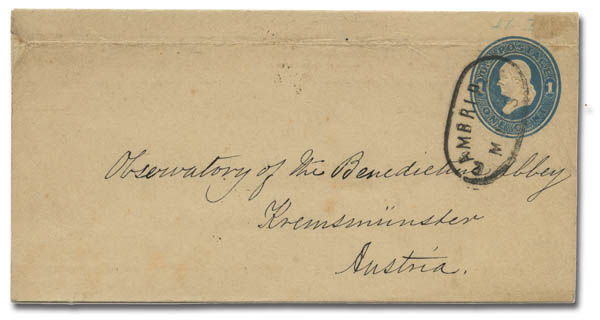 U.S. POSTAGE
1
ONE CENT
CAMBRID
M
Observatory of the Benedictine Abbey
Kremsmünster
Austria.